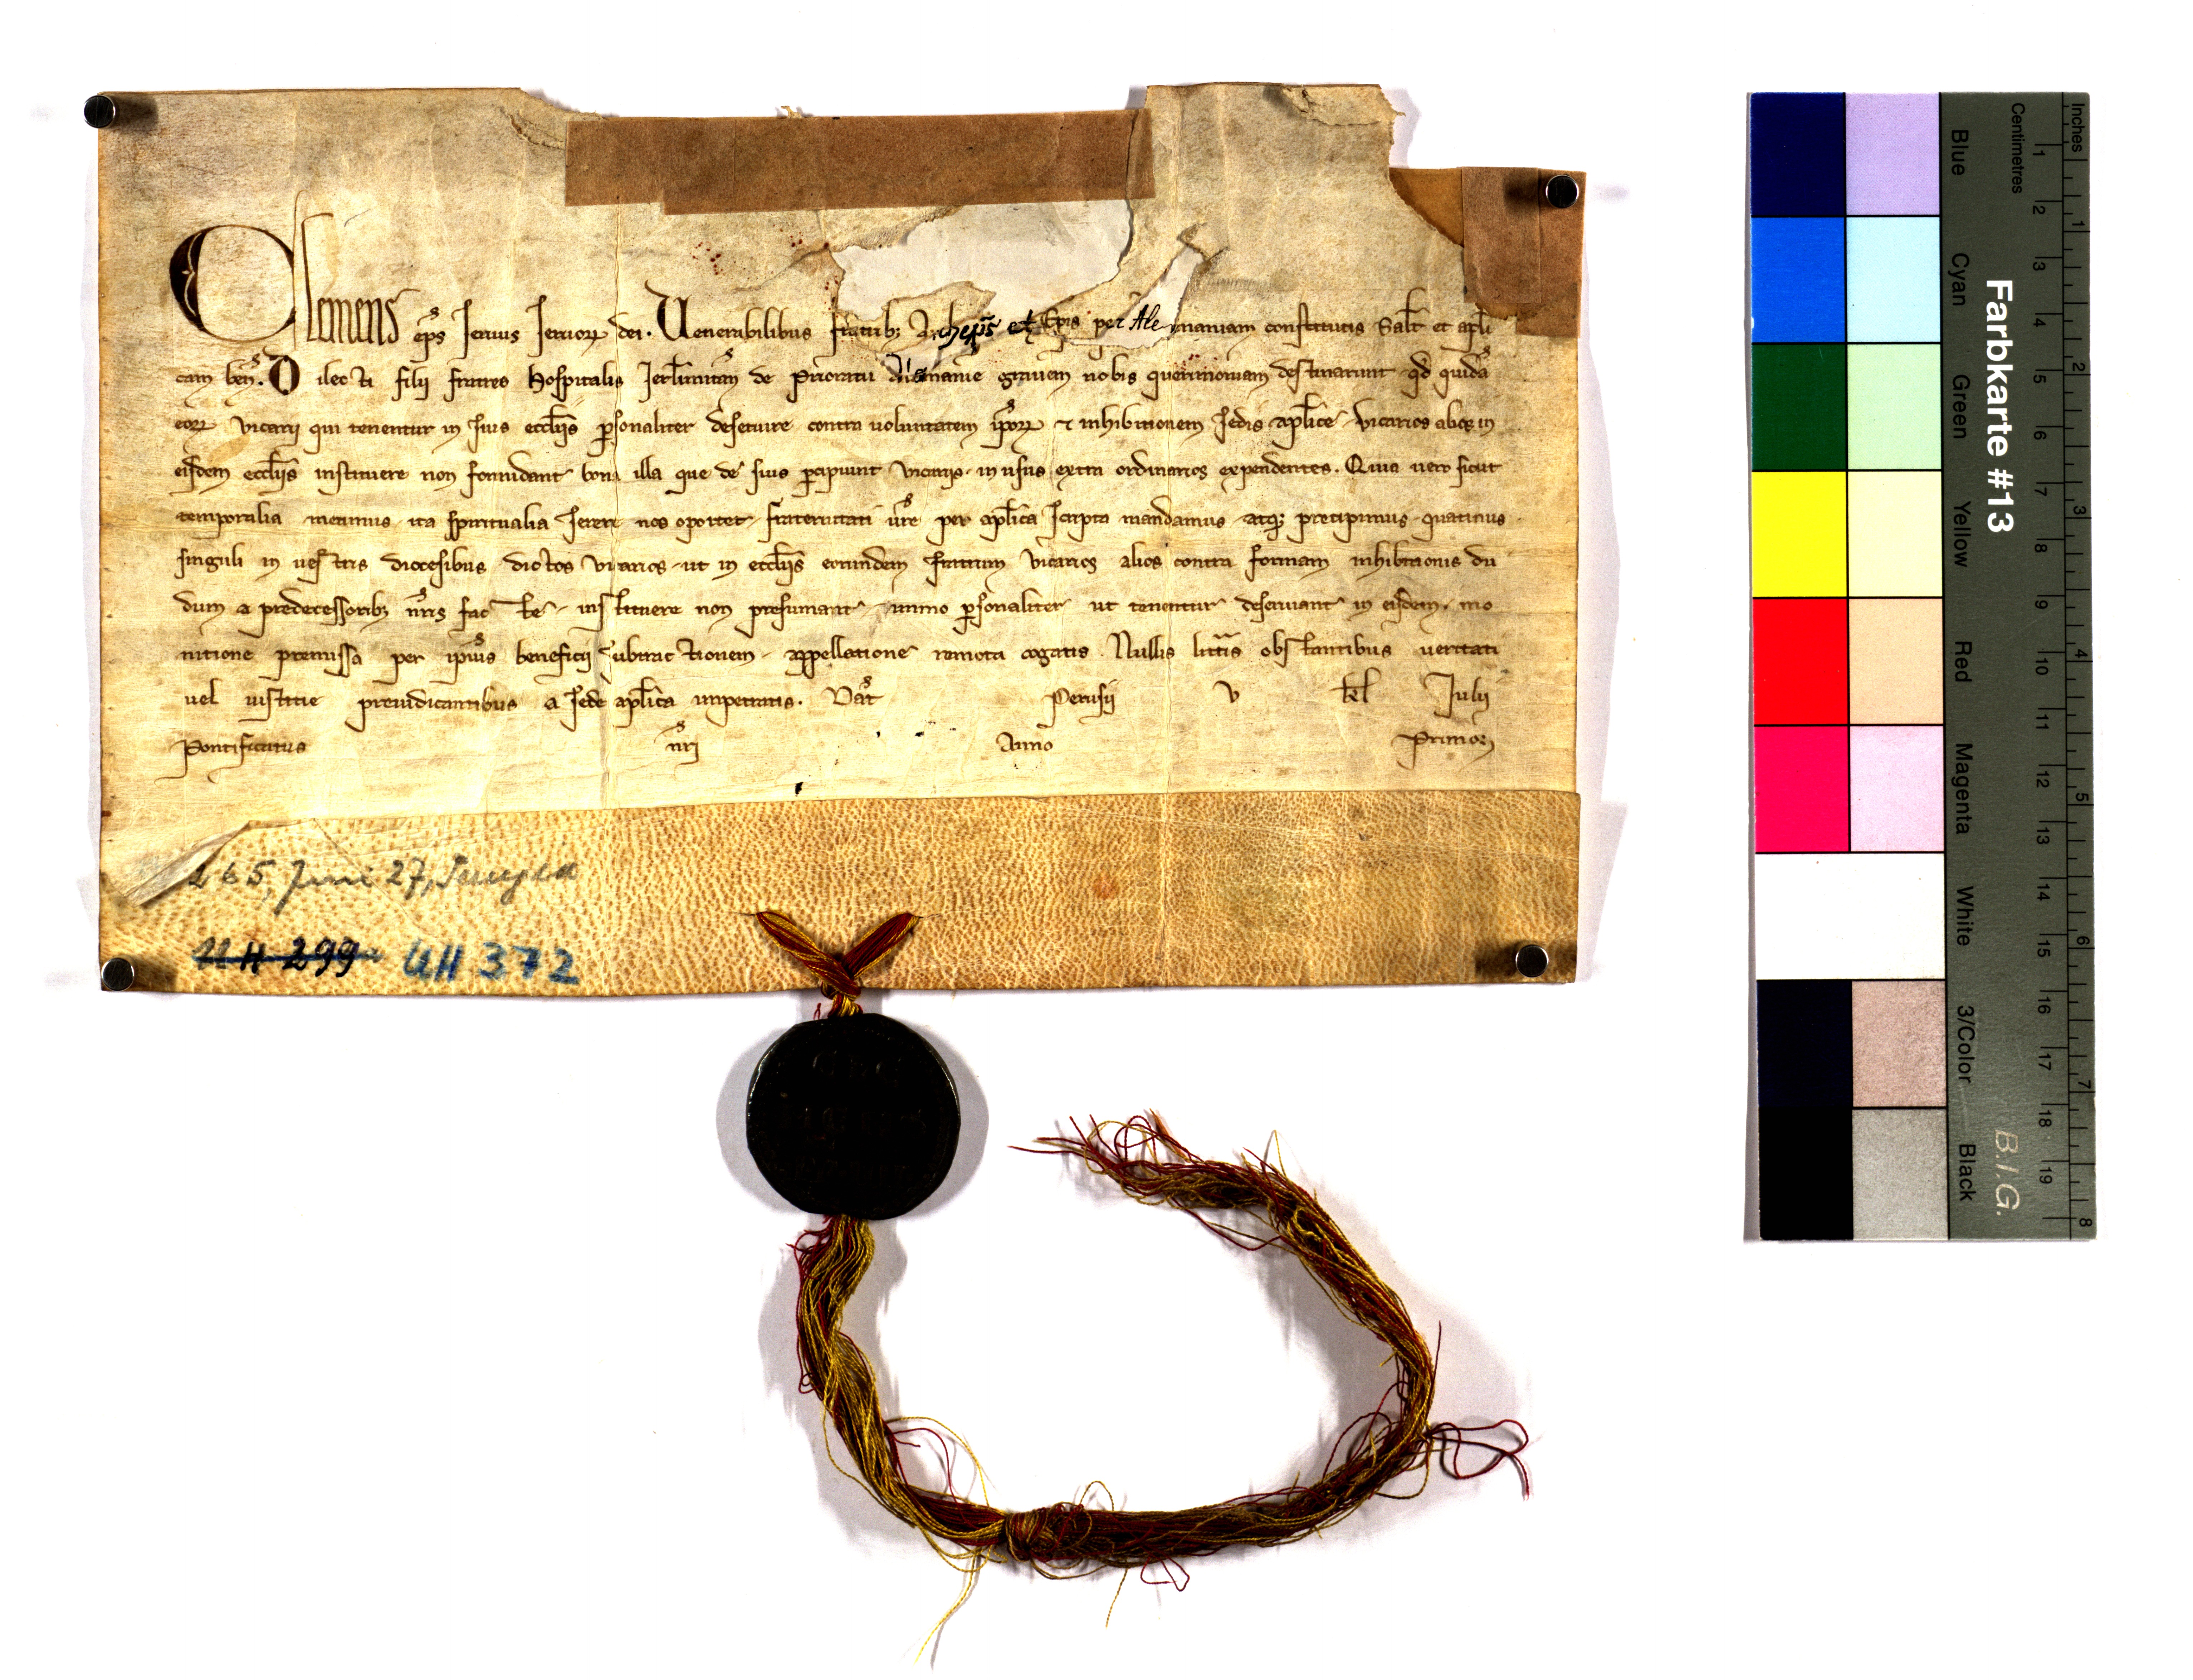 Clemens ep̄s seruus seruoꝝ dei. Uenerabilibus fratribꝫ Archiep̄is et Ep̄is per Alemaniam constitutis Salt̄ et apl̄i
cam ben̄. Dilecti filij fratres Hospitalis Ierl̄imitan̄ de Prioratu Alemanie grauem nobis querimoniam destinarunt qd̄ quidā
eoꝝ vicarij qui tenentur in suis eccl̄ijs ꝑsonaliter deseruire contra uoluntatem ip̄oꝝ ⁊ inhibitionem sedis apl̄ice vicarios alios in
eisdem eccl̄ijs instituere non formidant bona illa que de suis ꝑcipiunt vicarijs in usus extra ordinarios expendentes. Quia uero sicut
temporalia metimus ita spiritualia serere nos oportet fraternitati ūre per apl̄ica scripta mandamus atqꝫ precipimus quatinus
singuli in uestris diocesibus dictos vicarios ut in eccl̄ijs eorundem fratrum vicarios alios contra formam inhibitionis du
dum a predecessoribꝫ nr̄is facte instituere non presumant immo ꝑsonaliter ut tenentur deseruiant in eisdem mo
nitione premissa per ip̄ius beneficij subtractionem appellatione remota cogatis. Nullis litt̄is obstantibus ueritati
uel iustitie preiudicantibus a sede apl̄ica impetratis. Dat̄ Perusij v kl̄ Iulij
Pontificatus nr̄i Anno Primo
265, Juni 27, Perugia
UH 299 UH 372
Farbkarte #13
B.I.G.
Inches 1 2 3 4 5 6 7 8
Centimetres 1 2 3 4 5 6 7 8 9 10 11 12 13 14 15 16 17 18 19
Blue Cyan Green Yellow Red Magenta White 3/Color Black